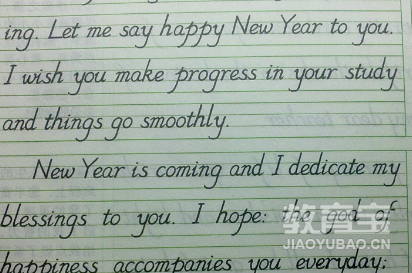 ing. Let me say happy New Year to you.
I wish you make progress in your study
and things go smoothly.
New Year is coming and I dedicate my
blessings to you. I hope: the god of
happiness accompanies you everyday;
教育宝
JIAOYUBAO.CN